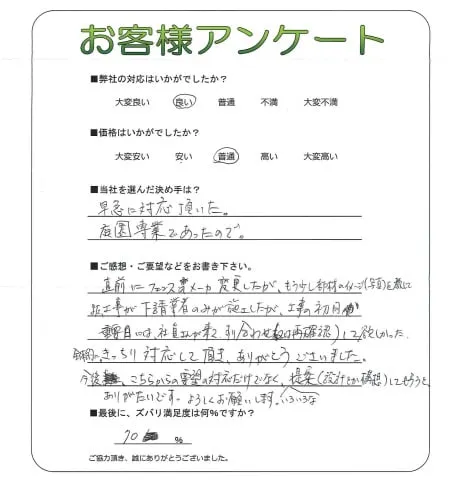 お客様アンケート
■弊社の対応はいかがでしたか？
大変良い 良い 普通 不満 大変不満
■価格はいかがでしたか？
大変安い 安い 普通 高い 大変高い
■当社を選んだ決め手は？
早急に対応頂いた。
庭園専業であったので。
■ご感想・ご要望などをお書き下さい。
直前にフェンス メーカ変更したが、もう少し部材のイメージ(写真)を
工事が下請業者のみが施工したが、工事の初日
には、社員さんが来て 打合わせ 再確認)して欲しかった。
きっちり対応して頂き、ありがとうございました。
今後 、こちらからの要望の対応だけでなく、提案(設計とか構想)してもらうと、
ありがたいです。よろしくお願いします。いろいろな
■最後に、ズバリ満足度は何%ですか？
70 %
ご協力頂き、誠にありがとうございました。